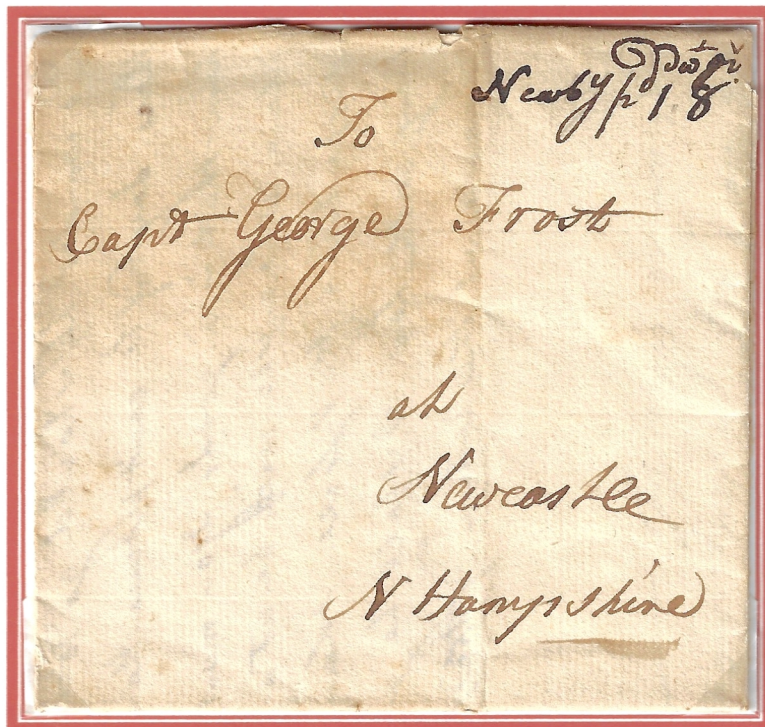 Newby pt 1 8
To
Capt George Frost
at
Newcastle
N Hampshire